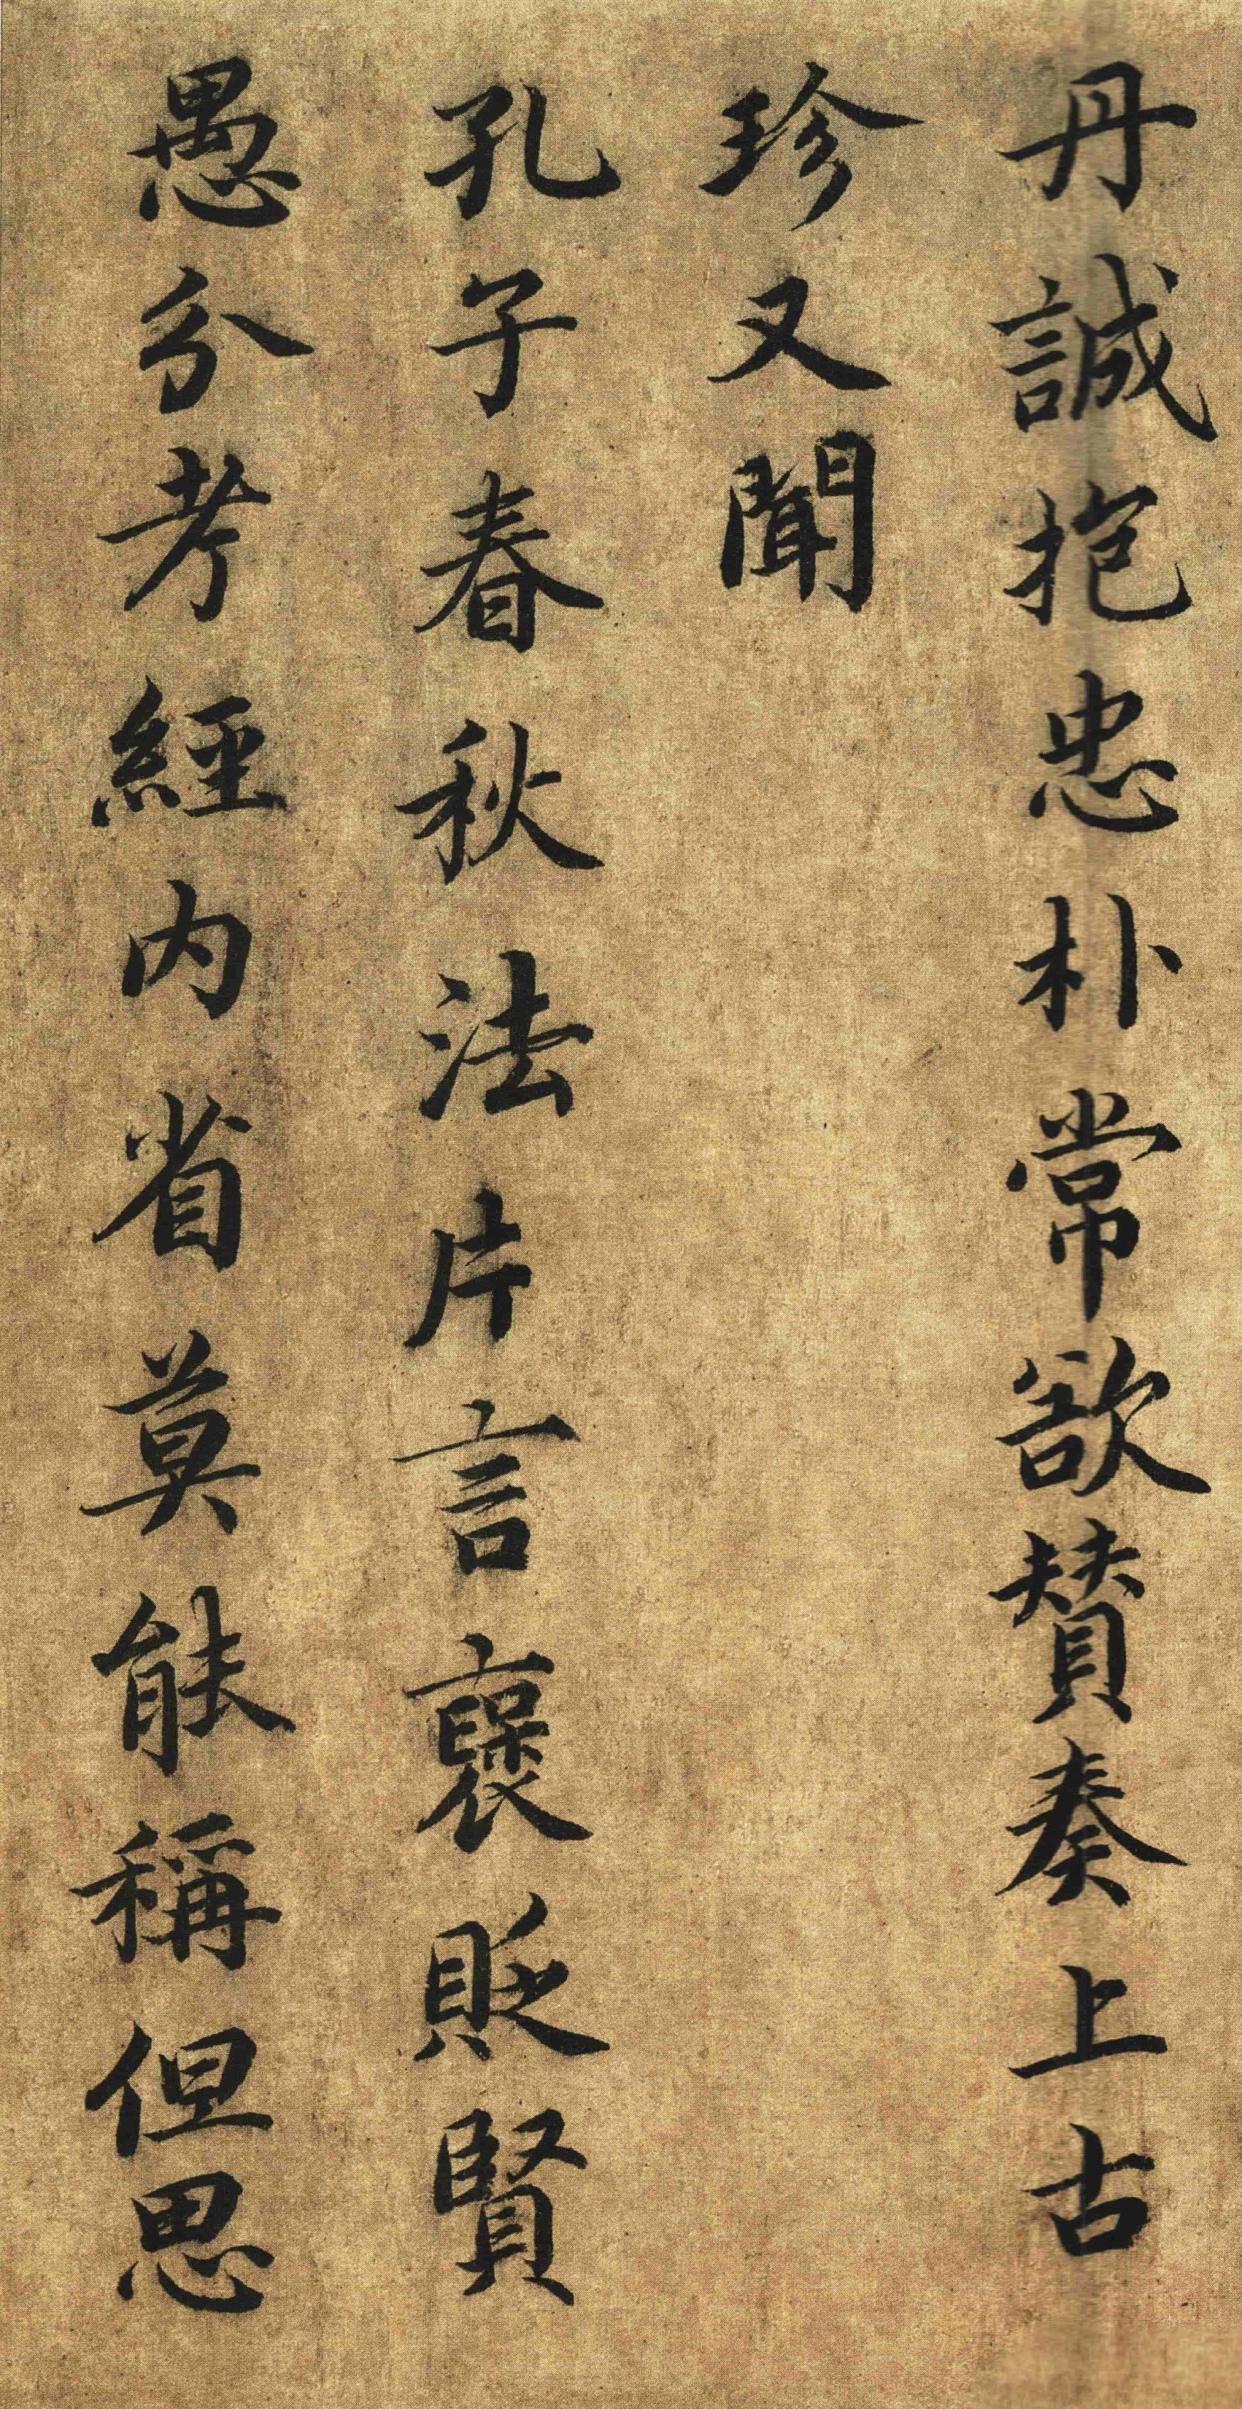 丹誠抱忠朴常欲賛奏上古
珍又聞
孔子春秋法片言褒貶賢
愚分考經内省莫能稱但思